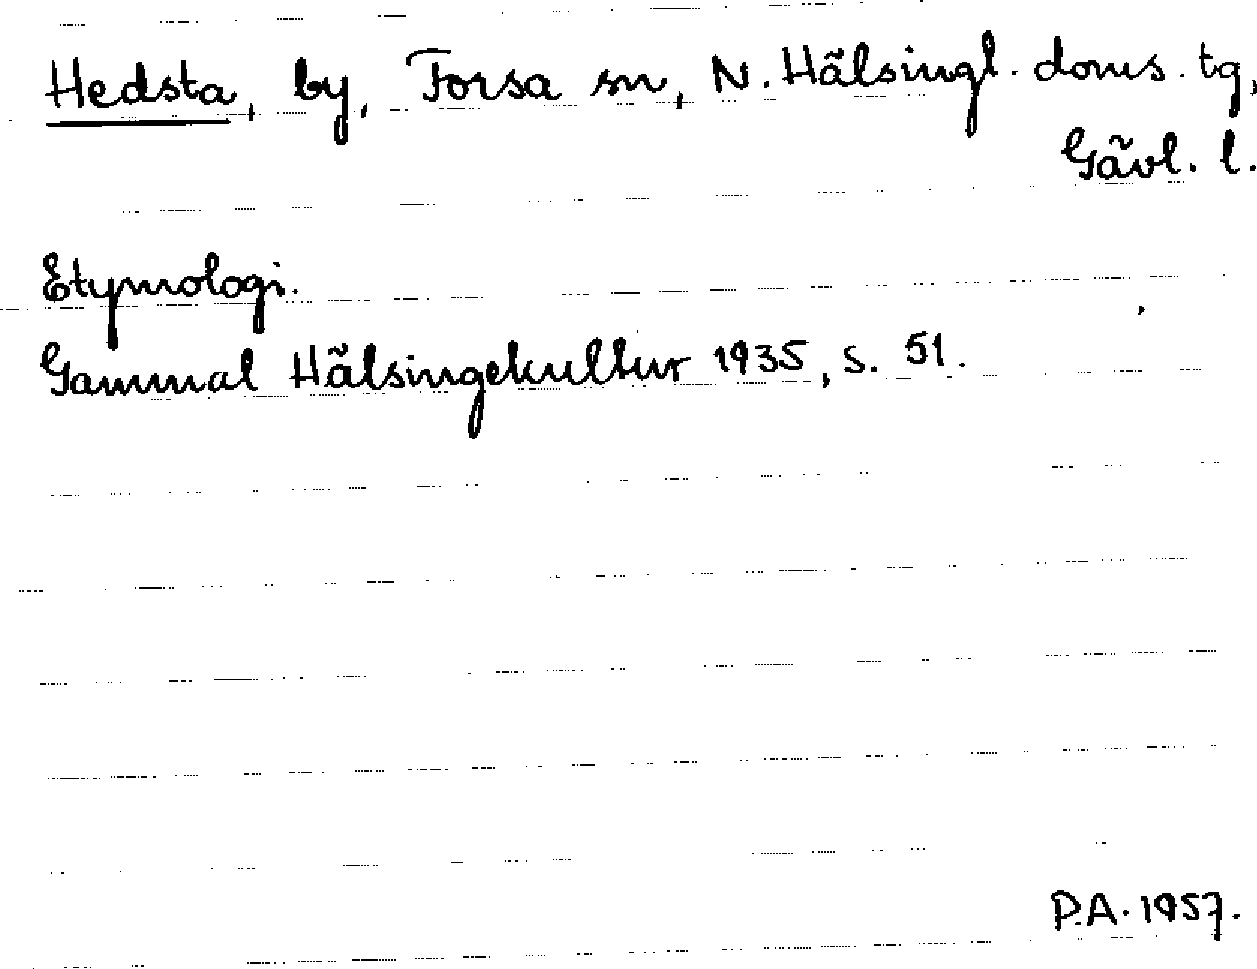 Hedsta, by, Forsa sn, N. Hälsingl. doms. tg,
Gävl. l.
Etymologi.
Gammal Hälsingekultur 1935, s. 51.
P.A. 1957.